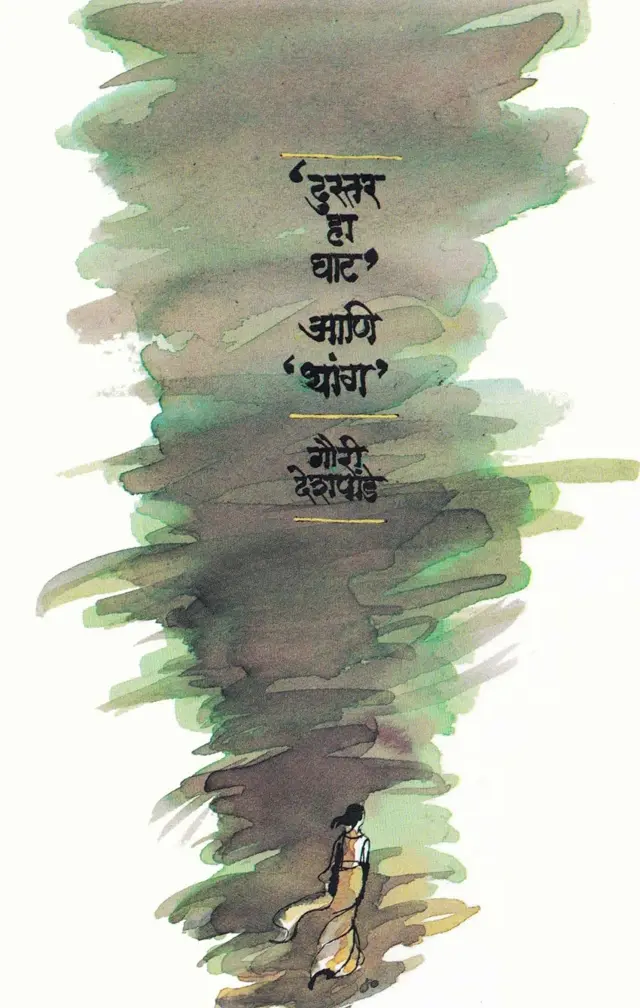 ‘दुस्तर
हा
घाट’
आणि
‘थांग’
गौरी
देशपांडे